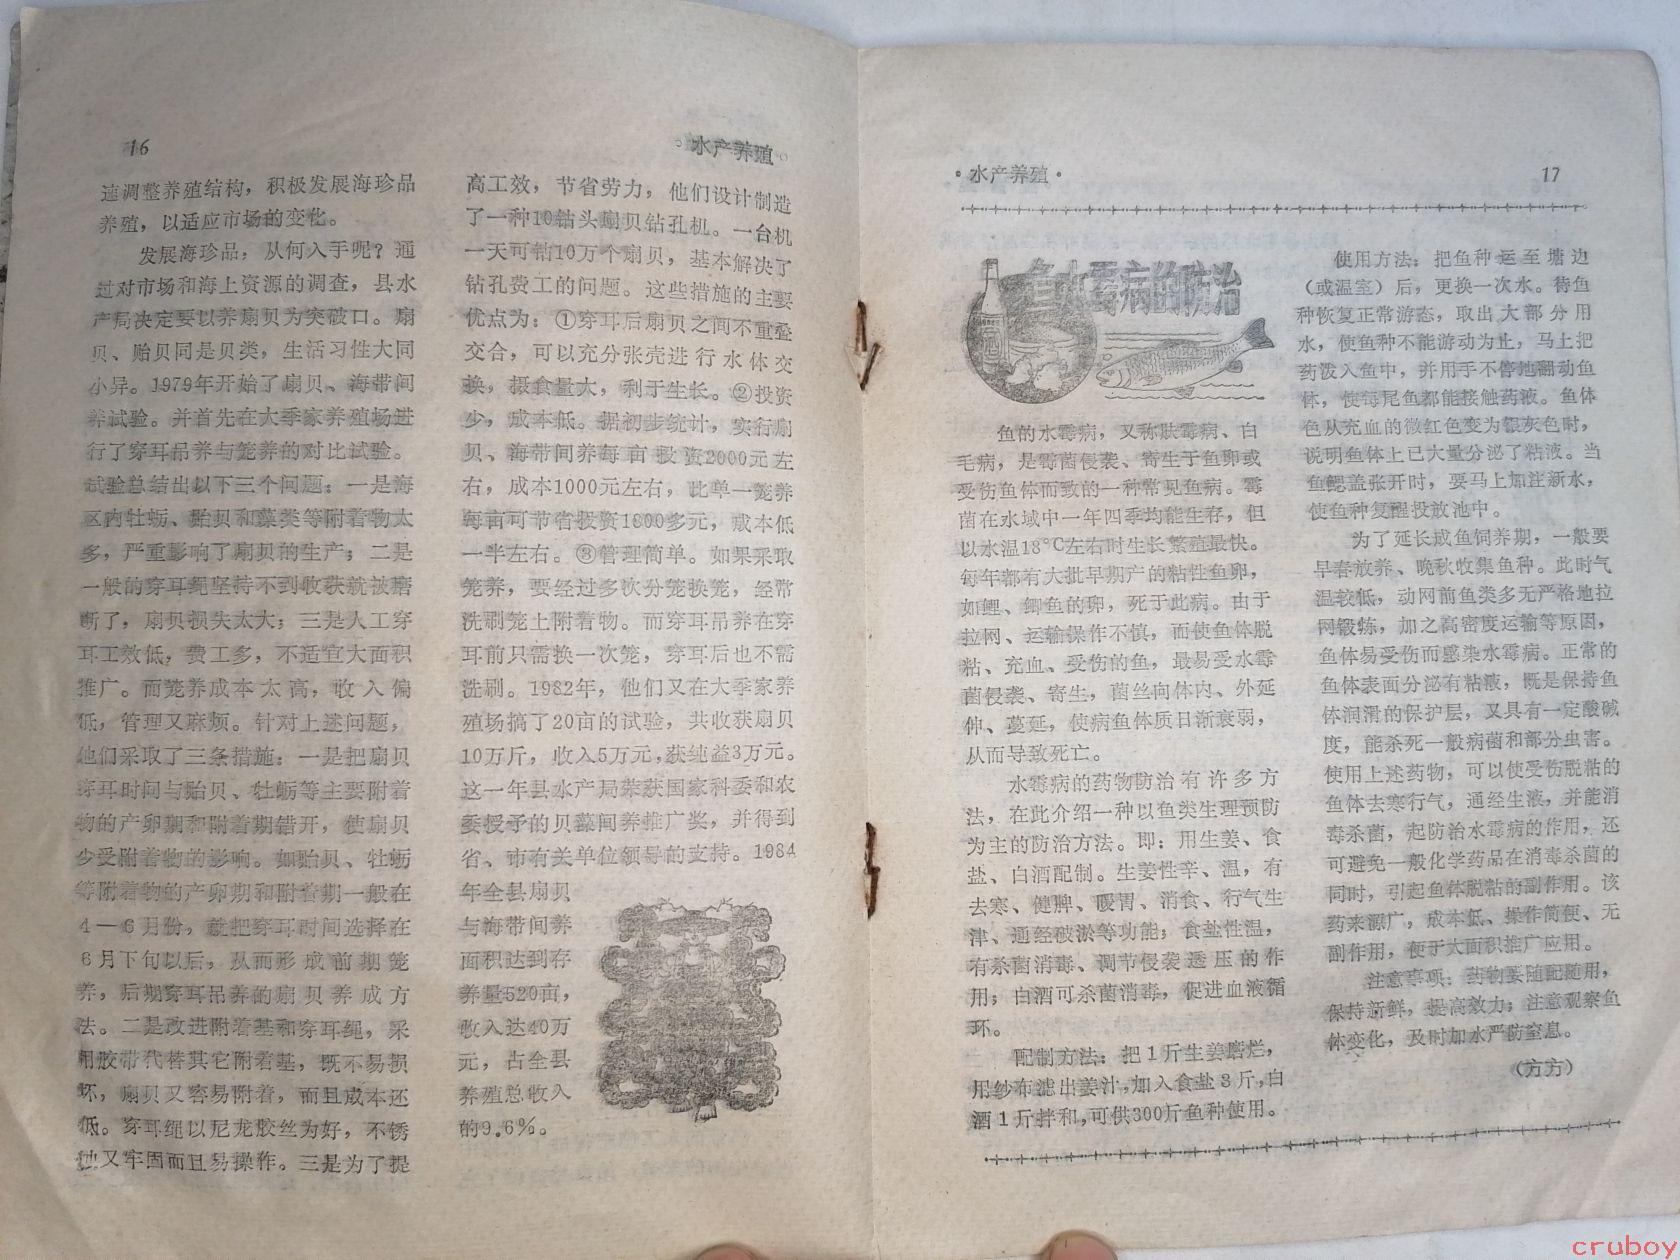 16
·水产养殖·
速调整养殖结构，积极发展海珍品
养殖，以适应市场的变化。
发展海珍品，从何入手呢？通
过对市场和海上资源的调查，县水
产局决定要以养扇贝为突破口。扇
贝、贻贝同是贝类，生活习性大同
小异。1979年开始了扇贝、海带间
养试验。并首先在大季家养殖场进
行了穿耳吊养与笼养的对比试验。
试验总结出以下三个问题：一是海
区内牡蛎、贻贝和藻类等附着物太
多，严重影响了扇贝的生产；二是
一般的穿耳绳坚持不到收获就被磨
断了，扇贝损失太大；三是人工穿
耳工效低，费工多，不适宜大面积
推广。而笼养成本太高，收入偏
低，管理又麻烦。针对上述问题，
他们采取了三条措施：一是把扇贝
穿耳时间与贻贝、牡蛎等主要附着
物的产卵期和附着期错开，使扇贝
少受附着物的影响。如贻贝、牡蛎
等附着物的产卵期和附着期一般在
4—6月份，就把穿耳时间选择在
6月下旬以后，从而形成前期笼
养，后期穿耳吊养的扇贝养成方
法。二是改进附着基和穿耳绳，采
用胶带代替其它附着基，既不易损
坏，扇贝又容易附着，而且成本还
低。穿耳绳以尼龙胶丝为好，不锈
蚀又牢固而且易操作。三是为了提
高工效，节省劳力，他们设计制造
了一种10钻头扇贝钻孔机。一台机
一天可钻10万个扇贝，基本解决了
钻孔费工的问题。这些措施的主要
优点为：①穿耳后扇贝之间不重叠
交合，可以充分张壳进行水体交
换，摄食量大，利于生长。②投资
少，成本低。据初步统计，实行扇
贝、海带间养每亩投资2000元左
右，成本1000元左右，比单一笼养
每亩可节省投资1800多元，成本低
一半左右。③管理简单。如果采取
笼养，要经过多次分笼换笼，经常
洗刷笼上附着物。而穿耳吊养在穿
耳前只需换一次笼，穿耳后也不需
洗刷。1982年，他们又在大季家养
殖场搞了20亩的试验，共收获扇贝
10万斤，收入5万元，获纯益3万元。
这一年县水产局荣获国家科委和农
委授予的贝藻间养推广奖，并得到
省、市有关单位领导的支持。1984
年全县扇贝
与海带间养
面积达到存
养量520亩，
收入达40万
元，占全县
养殖总收入
的9.6%。
·水产养殖·
17
鱼水霉病的防治
鱼的水霉病，又称肤霉病、白
毛病，是霉菌侵袭、寄生于鱼卵或
受伤鱼体而致的一种常见鱼病。霉
菌在水域中一年四季均能生存，但
以水温18℃左右时生长繁殖最快。
每年都有大批早期产的粘性鱼卵，
如鲤、鲫鱼的卵，死于此病。由于
拉网、运输操作不慎，而使鱼体脱
粘、充血、受伤的鱼，最易受水霉
菌侵袭、寄生，菌丝向体内、外延
伸、蔓延，使病鱼体质日渐衰弱，
从而导致死亡。
水霉病的药物防治有许多方
法，在此介绍一种以鱼类生理预防
为主的防治方法。即：用生姜、食
盐、白酒配制。生姜性辛、温，有
去寒、健脾、暖胃、消食、行气生
津、通经破淤等功能；食盐性温，
有杀菌消毒、调节侵袭透压的作
用；白酒可杀菌消毒，促进血液循
环。
配制方法：把1斤生姜磨烂，
用纱布滤出姜汁，加入食盐3斤，白
酒1斤拌和，可供300斤鱼种使用。
使用方法：把鱼种运至塘边
（或温室）后，更换一次水。待鱼
种恢复正常游态，取出大部分用
水，使鱼种不能游动为止，马上把
药泼入鱼中，并用手不停地翻动鱼
体，使每尾鱼都能接触药液。鱼体
色从充血的微红色变为银灰色时，
说明鱼体上已大量分泌了粘液。当
鱼鳃盖张开时，要马上加注新水，
使鱼种复醒投放池中。
为了延长成鱼饲养期，一般要
早春放养、晚秋收集鱼种。此时气
温较低，动网前鱼类多无严格地拉
网锻炼，加之高密度运输等原因，
鱼体易受伤而感染水霉病。正常的
鱼体表面分泌有粘液，既是保持鱼
体润滑的保护层，又具有一定酸碱
度，能杀死一般病菌和部分虫害。
使用上述药物，可以使受伤脱粘的
鱼体去寒行气，通经生液，并能消
毒杀菌，起防治水霉病的作用，还
可避免一般化学药品在消毒杀菌的
同时，引起鱼体脱粘的副作用。该
药来源广，成本低、操作简便、无
副作用，便于大面积推广应用。
注意事项：药物要随配随用，
保持新鲜，提高效力；注意观察鱼
体变化，及时加水严防窒息。
（方方）
cruboy